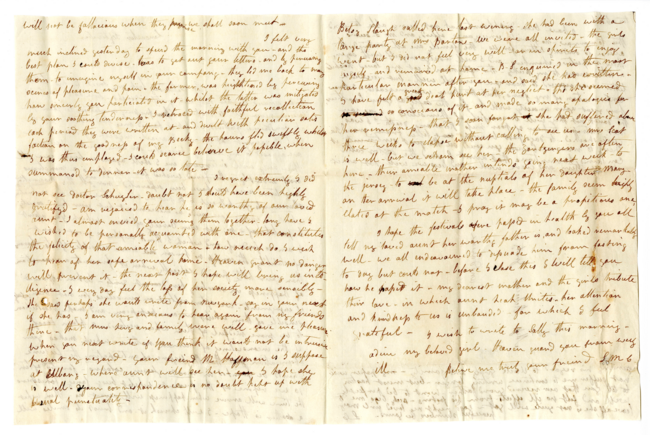 will not be fallacious when they promise we shall soon meet —
I felt very
much inclined yesterday to spend the morning with you - and the
best plan I could devise - was to get out your letters - and by perusing
them to imagine myself in your company - they led me back to many
scenes of pleasure and pain - the former was heightened by
how sincerely you participated in it - whilst the latter was mitigated
by your soothing tenderness - I retraced with faithful recollection
each period they were written at and dwelt with peculiar satis
faction on the good nap of my the hours fled swiftly whilst
I was thus employed - I could scarce believe it possible, when
summoned to dinner - it was so late -
I regret extremely I did
not see doctor doubt not I should have been highly
gratified - am rejoiced to hear he is so worthy of our lost
I almost envied your seeing them together long have I
wished to be personally acquainted with one - that constitutes
the felicity of that amiable woman - how much do I wish
to hear of her safe arrival home - Heaven grant no danger
will prevent it - the next post I hope will bring us intel
ligence - I every day feel the loss of her society more sensibly -
perhaps she wrote from or in your next
if she has - I am very anxious to hear again from my friends
there - that Mrs and family were well gave me pleasure
when you next write if you think it would not be intrusive
present my regard - your friend M Heffernan is I suppose
at Albany - where aunt will see her I hope she
is well - your correspondence is no doubt kept up with
usual punctuality -
Betsy called here last evening - she had been with a
large party at Mrs Bartows - we were all invited - the girls
went - but I did not feel very well nor in spirits to enjoy
myself and remained at home - B - L enquired in the most
particular manner after you - and says she has written -
I gave just a hint at her neglect - she seemed
so conscious of it and made so many apologies for
her remissness - that I soon forgot it she had suffered almost
three weeks to elapse without calling to see us - Mrs
is well - but we seldom see her - the are often
here - their amiable mother intends going next week to
the Jersey to be at the nuptials of her daughter Mary
on her arrival it will take place - the family seem highly
elated at the match - I pray it may be a propitious one
I hope the festivals were passed in health by you all
tell my loved aunt her worthy father is and looked remarkably
well - we all endeavoured to dissuade him from fasting
to day but could not - before I close this I will tell you
how he passed it - my dearest mother and the girls tribute
their love - in which aunt - her attention
and kindness to us is unbounded - for which I feel
grateful - I wish to write to Sally this morning -
adieu my beloved girl - Heaven guard you from every
ill - believe me truly your friend S M C